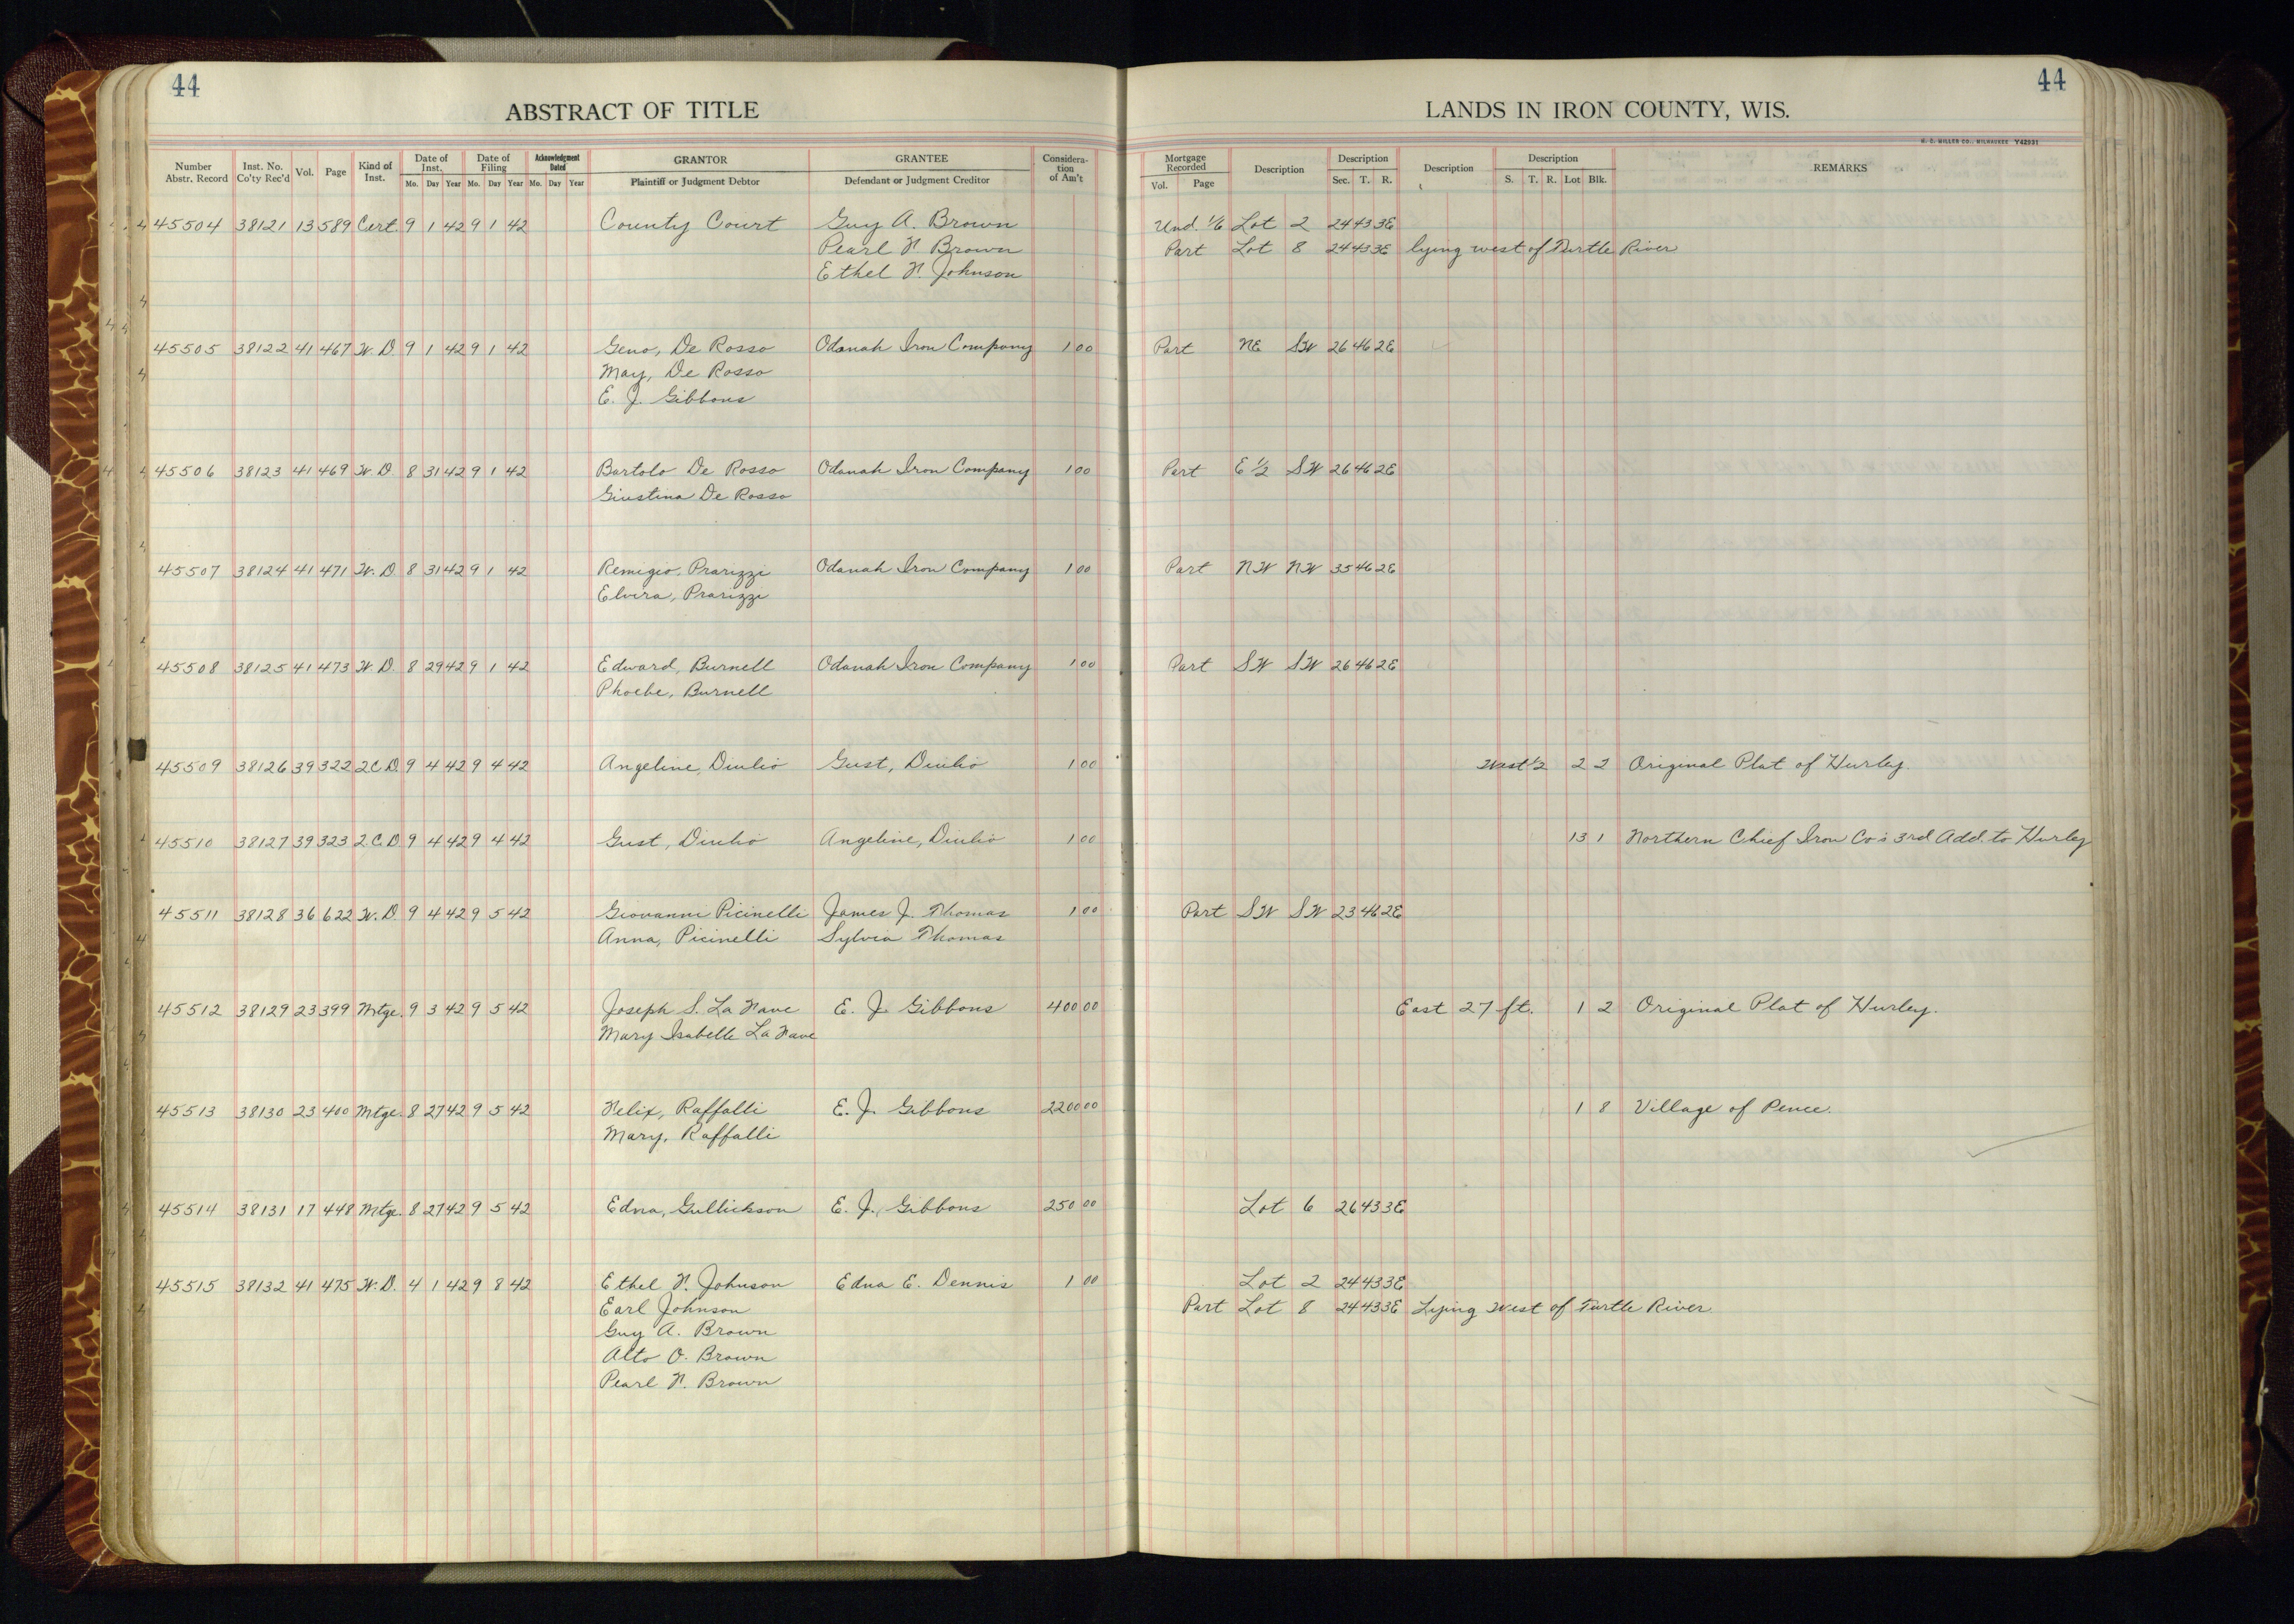 44
44
ABSTRACT OF TITLE
LANDS IN IRON COUNTY, WIS.
H. C. MILLER CO., MILWAUKEE Y42931
Number Abstr. Record Inst. No. Co'ty Rec'd Vol. Page Kind of Inst. Date of Inst. Mo. Day Year Date of Filing Mo. Day Year Acknowledgment Dated Mo. Day Year GRANTOR Plaintiff or Judgment Debtor GRANTEE Defendant or Judgment Creditor Considera-tion of Am't Mortgage Recorded Vol. Page Description Description Sec. T. R. Description Description S. T. R. Lot Blk. REMARKS
45504 38121 13 589 Cert. 9 1 42 9 1 42 County Court Guy A. Brown Und. 1/6 Lot 2 24 43 3E
Pearl N. Brown Part Lot 8 24 43 3E lying west of Turtle River
Ethel N. Johnson
45505 38122 41 467 W. D. 9 1 42 9 1 42 Geno, De Rosso Odanah Iron Company 1 00 Part NE SW 26 46 2E
May, De Rosso
E. J. Gibbons
45506 38123 41 469 W. D. 8 31 42 9 1 42 Bartolo De Rosso Odanah Iron Company 1 00 Part E 1/2 SW 26 46 2E
Giustina De Rosso
45507 38124 41 471 W. D. 8 31 42 9 1 42 Remigio, Prarizzi Odanah Iron Company 1 00 Part NW NW 35 46 2E
Elvira, Prarizzi
45508 38125 41 473 W. D. 8 29 42 9 1 42 Edward, Burnell Odanah Iron Company 1 00 Part SW SW 26 46 2E
Phoebe, Burnell
45509 38126 39 322 2 C D. 9 4 42 9 4 42 Angeline, Diulio Gust, Diulio 1 00 West 1/2 2 2 Original Plat of Hurley.
45510 38127 39 323 2 C. D. 9 4 42 9 4 42 Gust, Diulio Angeline, Diulio 1 00 13 1 Northern Chief Iron Co's 3rd Add. to Hurley
45511 38128 36 622 W. D. 9 4 42 9 5 42 Giovanni Picinelli James J. Thomas 1 00 Part SW SW 23 46 2E
Anna, Picinelli Sylvia Thomas
45512 38129 23 399 Mtge. 9 3 42 9 5 42 Joseph S. La Nave E. J. Gibbons 400 00 East 27 ft. 1 2 Original Plat of Hurley.
Mary Isabelle La Nave
45513 38130 23 400 Mtge. 8 27 42 9 5 42 Felix, Raffalli E. J. Gibbons 2200 00 1 8 Village of Pence.
Mary, Raffalli
45514 38131 17 448 Mtge. 8 27 42 9 5 42 Edna, Gullickson E. J. Gibbons 250 00 Lot 6 26 43 3E
45515 38132 41 475 W. D. 4 1 42 9 8 42 Ethel N. Johnson Edna E. Dennis 1 00 Lot 2 24 43 3E
Earl Johnson Part Lot 8 24 43 3E Lying West of Turtle River.
Guy A. Brown
Alto O. Brown
Pearl N. Brown